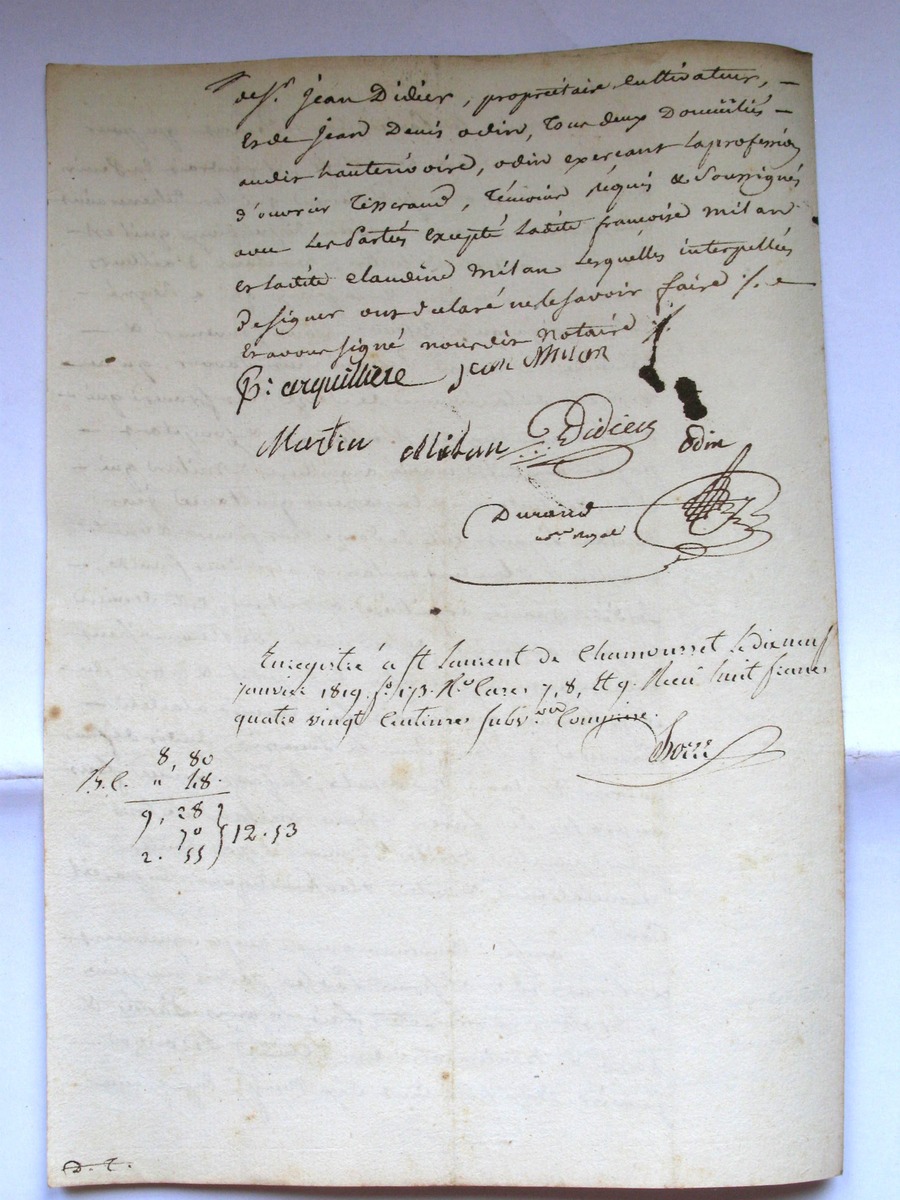 de Sr. jean Didier, propriétaire cultivateur, —
Et de jean Denis odin, tous deux Domiciliés —
audit hauterivoire, odin exerçant la profession
d'ouvrier Tisserand, Témoins Réquis & Soussignés
avec Les Partiés excepté Ladite françoise Milan
et Ladite claudine Milan Lesquelles interpellées
de signer ont declaré ne le savoir faire
Et avons signé nous dit Notaire
P: arquilliere jean Milan
Martin Milan Didier odin
Durand
nore Royal
Enregistré à St Laurent de Chamousset le dix neuf
janvier 1819. fo. 173. Ro. Cases 7, 8, et 9. Reçu huit francs
quatre vingt centimes subv.on Comprise.
8, 80
" 48.
9, 28
70 } 12.53
2. 55
D. T.